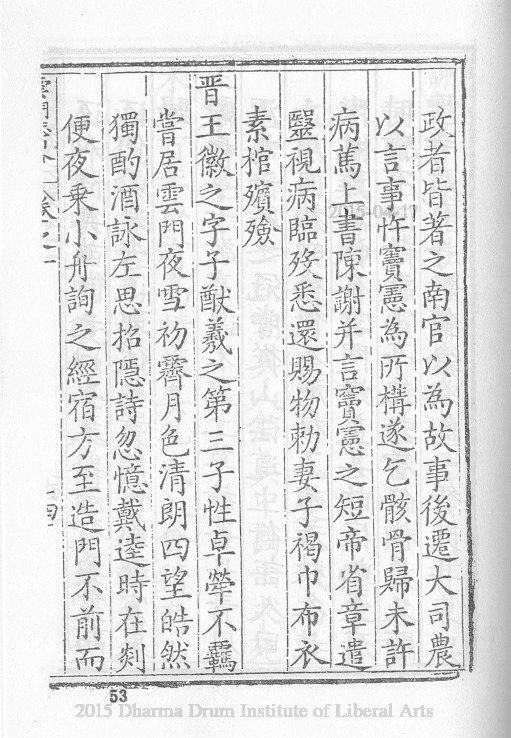 政者皆著之南官以為故事後遷大司農
以言事忤竇憲為所構遂乞骸骨歸未許
病篤上書陳謝并言竇憲之短帝省章遣
毉視病臨歿悉還賜物勑妻子褐巾布衣
素棺殯殮
晋王徽之字子猷羲之第三子性卓犖不羈
嘗居雲門夜雪初霽月色清朗四望皓然
獨酌酒詠左思招隱詩忽憶戴逵時在剡
便夜乗小舟詢之經宿方至造門不前而
卷之一
十四
53
2015 Dharma Drum Institute of Liberal Arts